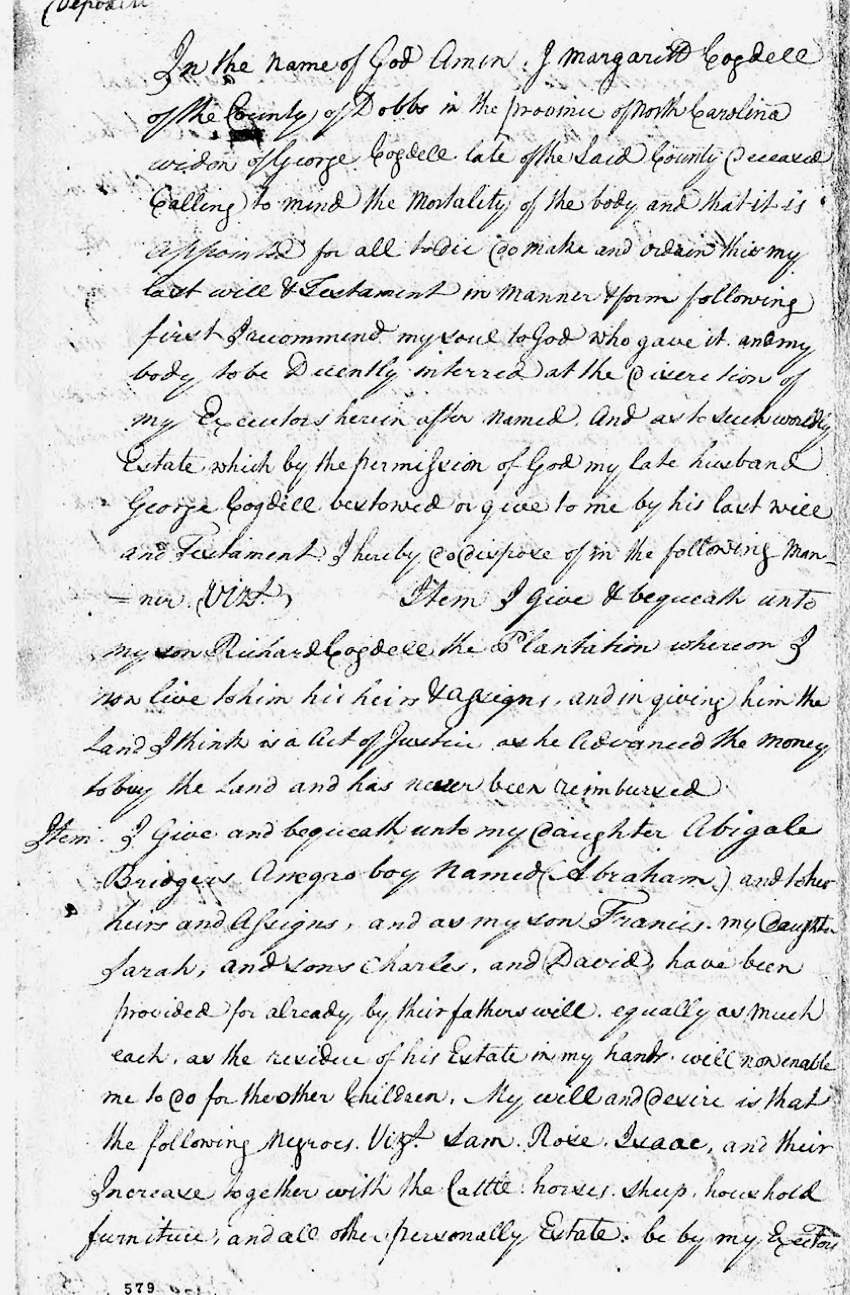 (Deposed
In the name of God Amin. I Margarett Cogdell
of the County of Dobbs in the province of North Carolina
widow of George Cogdell late of the Said County Deceased
Calling to mind the Mortality of the body and that it is
appointed for all to die do make and ordain this my
last will & Testament in Manner & form following
first I recommend my soul to God who gave it and my
body to be Decently interred at the Discretion of
my Executors herein after Named. And as to Such worldly
Estate which by the permission of God my late husband
George Cogdell bestowed or give to me by his last will
and Testament I hereby do dispose of in the following Man-
=ner. Vizt. Item I Give & bequeath unto
my son Richard Cogdell the Plantation whereon I
now live to him his heirs & assigns, and in giving him the
Land I think is a Act of Justice as he Advanced the money
to buy the Land and has never been reimbursed
Item. I Give and bequeath unto my Daughter Abigale
Bridgers A negro boy Named (Abraham) and to her
heirs and Assigns, and as my son Francis. my Daughter
Sarah, and sons Charles, and David, have been
provided for already by their fathers will. equally as Much
each, as the residue of his Estate in my hands. will now enable
me to do for the other Children. My will and Desire is that
the following Negroes. Vizt. Sam. Rose. Isaac, and their
Increase together with the Cattle. horses. sheep. houshold
furniture, and all other personally Estate. be by my Exectors
579